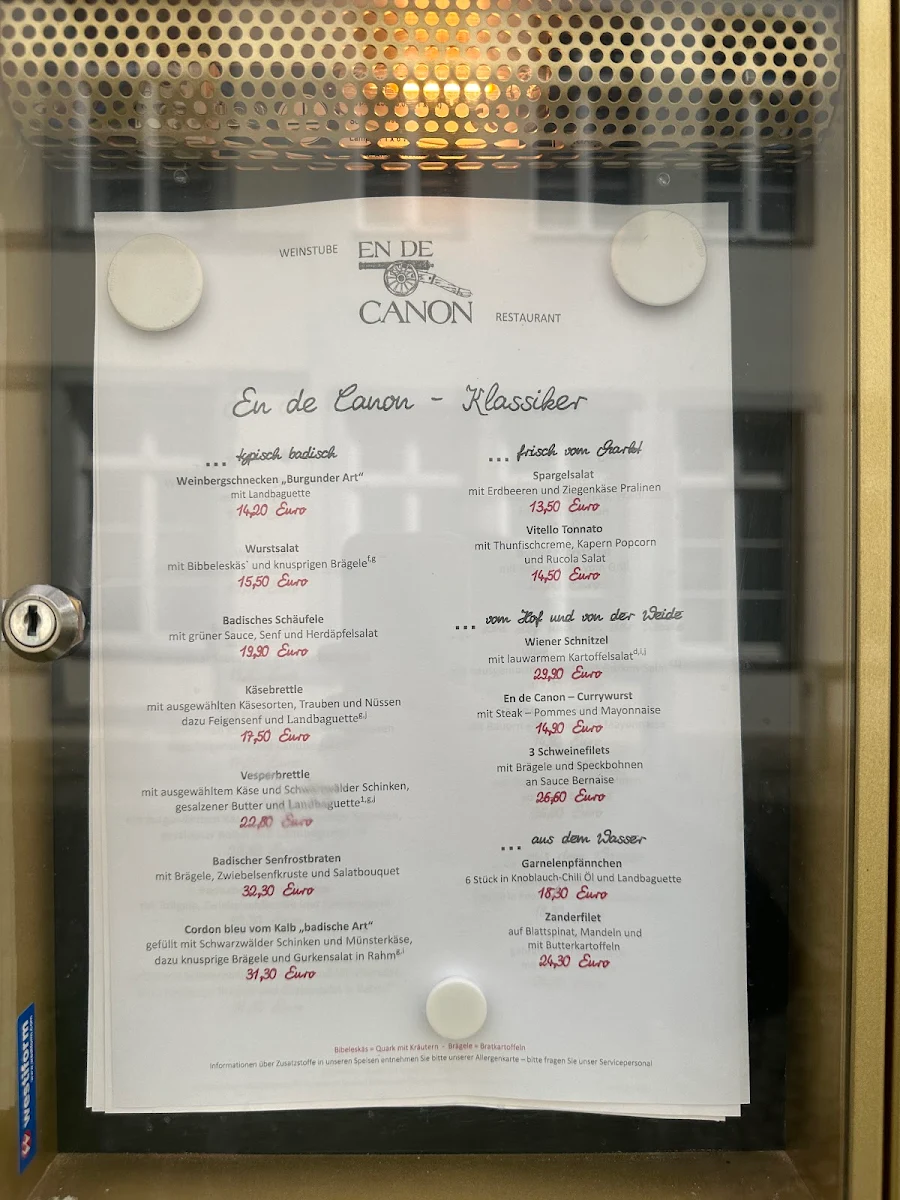 WEINSTUBE
EN DE
CANON
RESTAURANT
En de Canon - Klassiker
... typisch badisch
Weinbergschnecken „Burgunder Art“
mit Landbaguette
14,20 Euro
Wurstsalat
mit Bibbeleskäs` und knusprigen Brägele f,g
15,50 Euro
Badisches Schäufele
mit grüner Sauce, Senf und Herdäpfelsalat
19,90 Euro
Käsebrettle
mit ausgewählten Käsesorten, Trauben und Nüssen
dazu Feigensenf und Landbaguette g,j
17,50 Euro
Vesperbrettle
mit ausgewähltem Käse und Schwarzwälder Schinken,
gesalzener Butter und Landbaguette 1,g,j
22,80 Euro
Badischer Senfrostbraten
mit Brägele, Zwiebelsenfkruste und Salatbouquet
32,30 Euro
Cordon bleu vom Kalb „badische Art“
gefüllt mit Schwarzwälder Schinken und Münsterkäse,
dazu knusprige Brägele und Gurkensalat in Rahm
31,30 Euro
... frisch vom Markt
Spargelsalat
mit Erdbeeren und Ziegenkäse Pralinen
13,50 Euro
Vitello Tonnato
mit Thunfischcreme, Kapern Popcorn
und Rucola Salat
14,50 Euro
... vom Hof und von der Weide
Wiener Schnitzel
mit lauwarmem Kartoffelsalat
29,90 Euro
En de Canon – Currywurst
mit Steak – Pommes und Mayonnaise
14,90 Euro
3 Schweinefilets
mit Brägele und Speckbohnen
an Sauce Bernaise
26,60 Euro
... aus dem Wasser
Garnelenpfännchen
6 Stück in Knoblauch-Chili Öl und Landbaguette
18,30 Euro
Zanderfilet
auf Blattspinat, Mandeln und
mit Butterkartoffeln
24,30 Euro
Bibeleskäs = Quark mit Kräutern - Brägele = Bratkartoffeln
Informationen über Zusatzstoffe in unseren Speisen entnehmen Sie bitte unserer Allergenkarte – bitte fragen Sie unser Servicepersonal
westiform